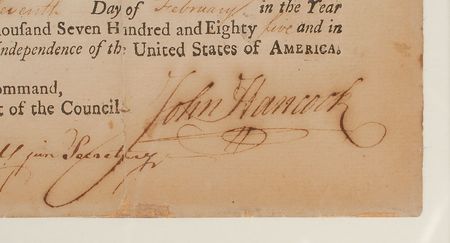 Day of February in the Year
housand Seven Hundred and Eighty five and in
Independence of the United States of AMERICA.
ommand,
t of the Council
John Hancock
jun Secretary